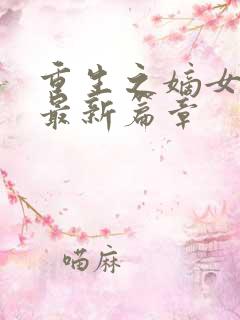 重生之嫡女
最新篇章
喵麻